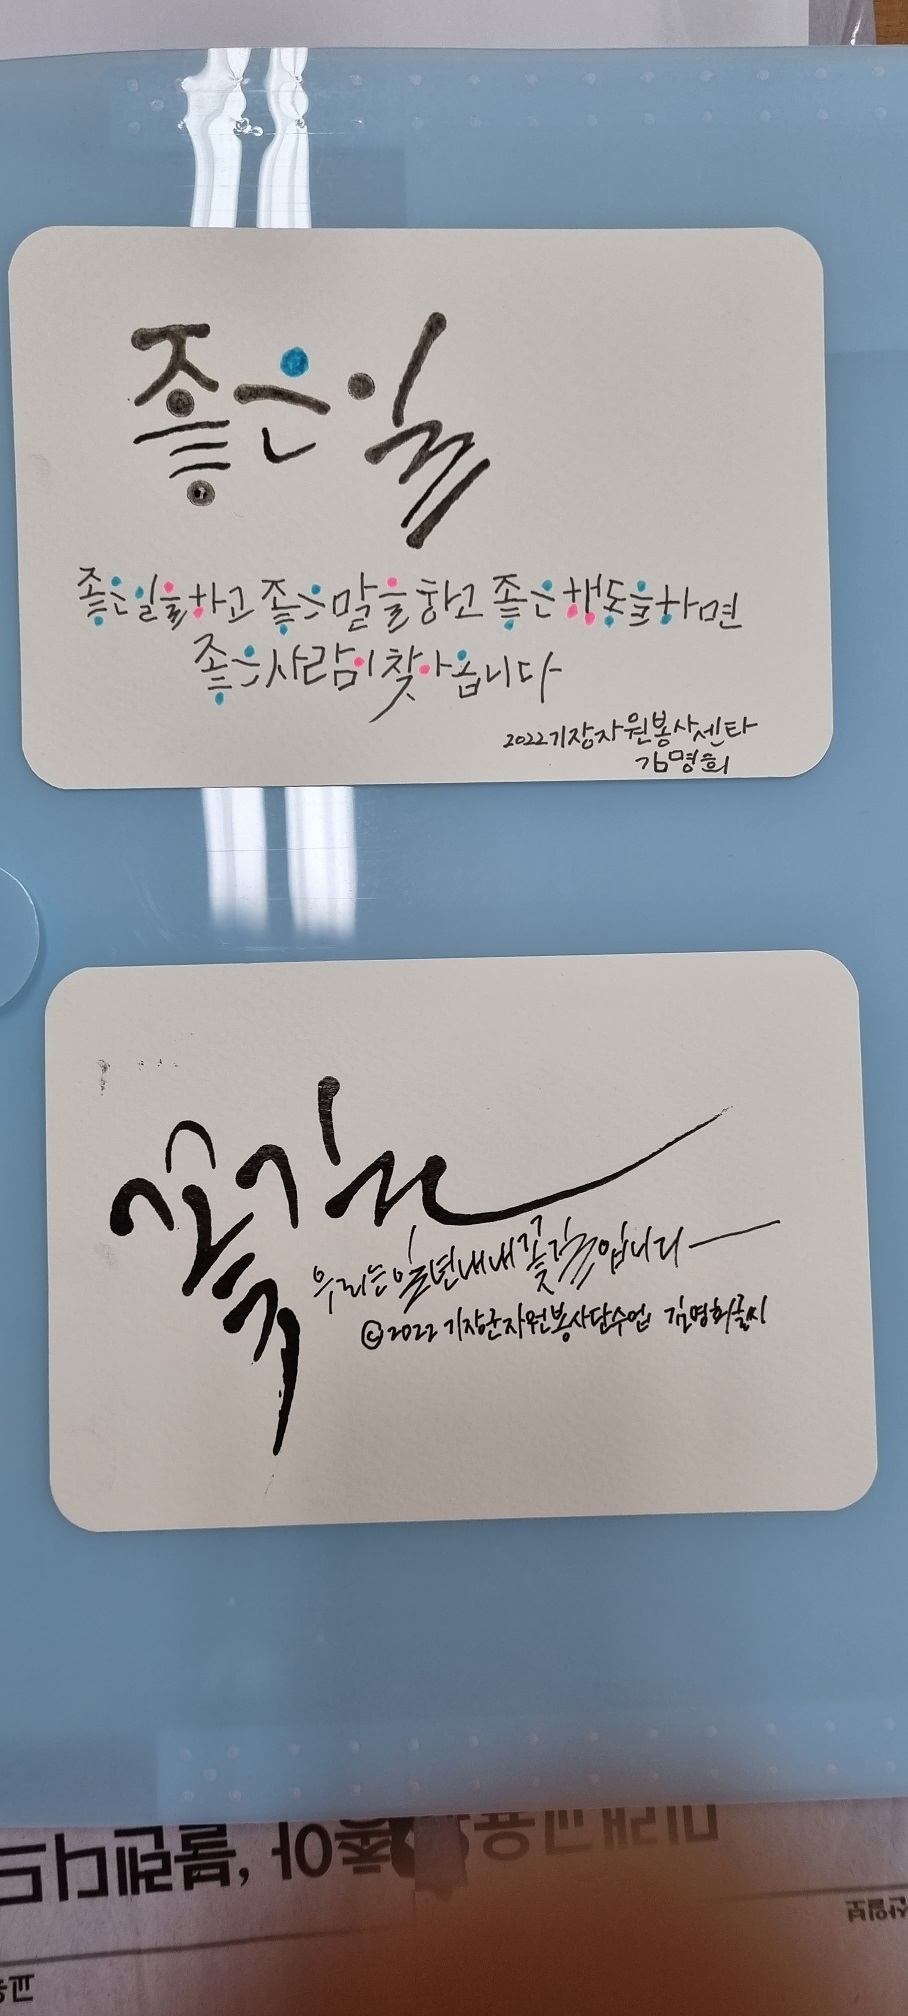 좋은일
좋은일을하고 좋은말을하고 좋은행동을하면
좋은사람이찾아옵니다
2022기장자원봉사센타
김명희
꽃길
우리는일년내내꽃길입니다
©2022 기장군자원봉사단수업 김명희글씨
미래교육
좋아, 블렌디드